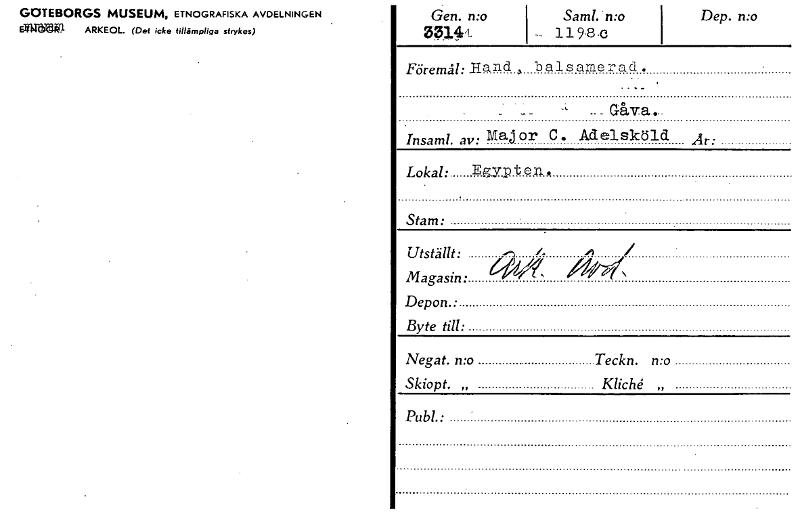 GÖTEBORGS MUSEUM, ETNOGRAFISKA AVDELNINGEN
ETNOGR. ARKEOL. (Det icke tillämpliga strykes)
Gen. n:o Saml. n:o Dep. n:o
3314 1198
Föremål: Hand, balsamerad.
Gåva.
Insaml. av: Major C. Adelsköld År:
Lokal: Egypten.
Stam:
Utställt:
Ark. Avd.
Magasin:
Depon.:
Byte till:
Negat. n:o Teckn. n:o
Skiopt. „ Kliché „
Publ.: